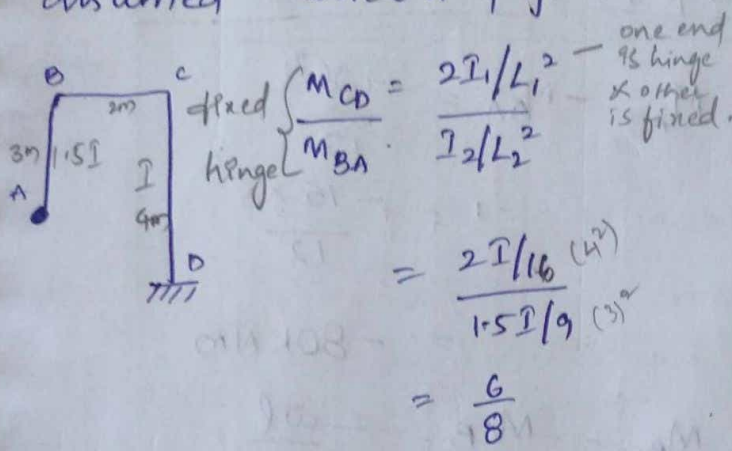 assumed
B
C
2m
3m
1.5I
I
A
4m
D
fixed
hinge
M_CD / M_BA = 2I₁/L₁² / I₂/L₂²
one end
is hinge
& other
is fixed.
= 2I/16 (4²) / 1.5I/9 (3)²
= 6/8